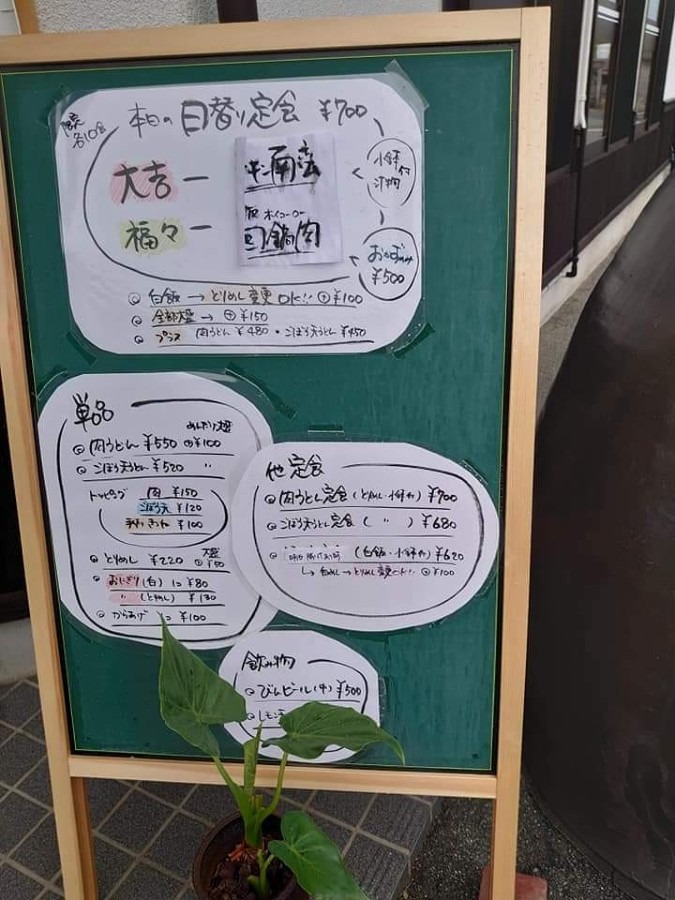 本日の日替り定食 ¥700
限定
各10食
大吉 ー チキン南蛮
福々 ー
ホイコーロー
回鍋肉
小鉢付
汁物
おかずのみ
¥500
白飯 → とりめし変更OK!! ⊕¥100
全部大盛 → ⊕¥150
プラス 肉うどん ¥480・ごぼう天うどん ¥450
単品
めんたり大盛
肉うどん ¥550 ⊕¥100
ごぼう天うどん ¥520 〃
トッピング 肉 ¥150
ごぼう天 ¥120
¥100
とりめし ¥220 大盛
⊕¥50
おにぎり(白) 1コ ¥80
〃 (とりめし) ¥130
からあげ 1コ ¥100
他定食
肉うどん定食(とりめし・小鉢付) ¥700
ごぼう天うどん定食( 〃 ) ¥680
(白飯・小鉢付) ¥620
↳ 白めし→とりめし変更OK!! ⊕¥100
飲み物
びんビール(中) ¥500
レモン